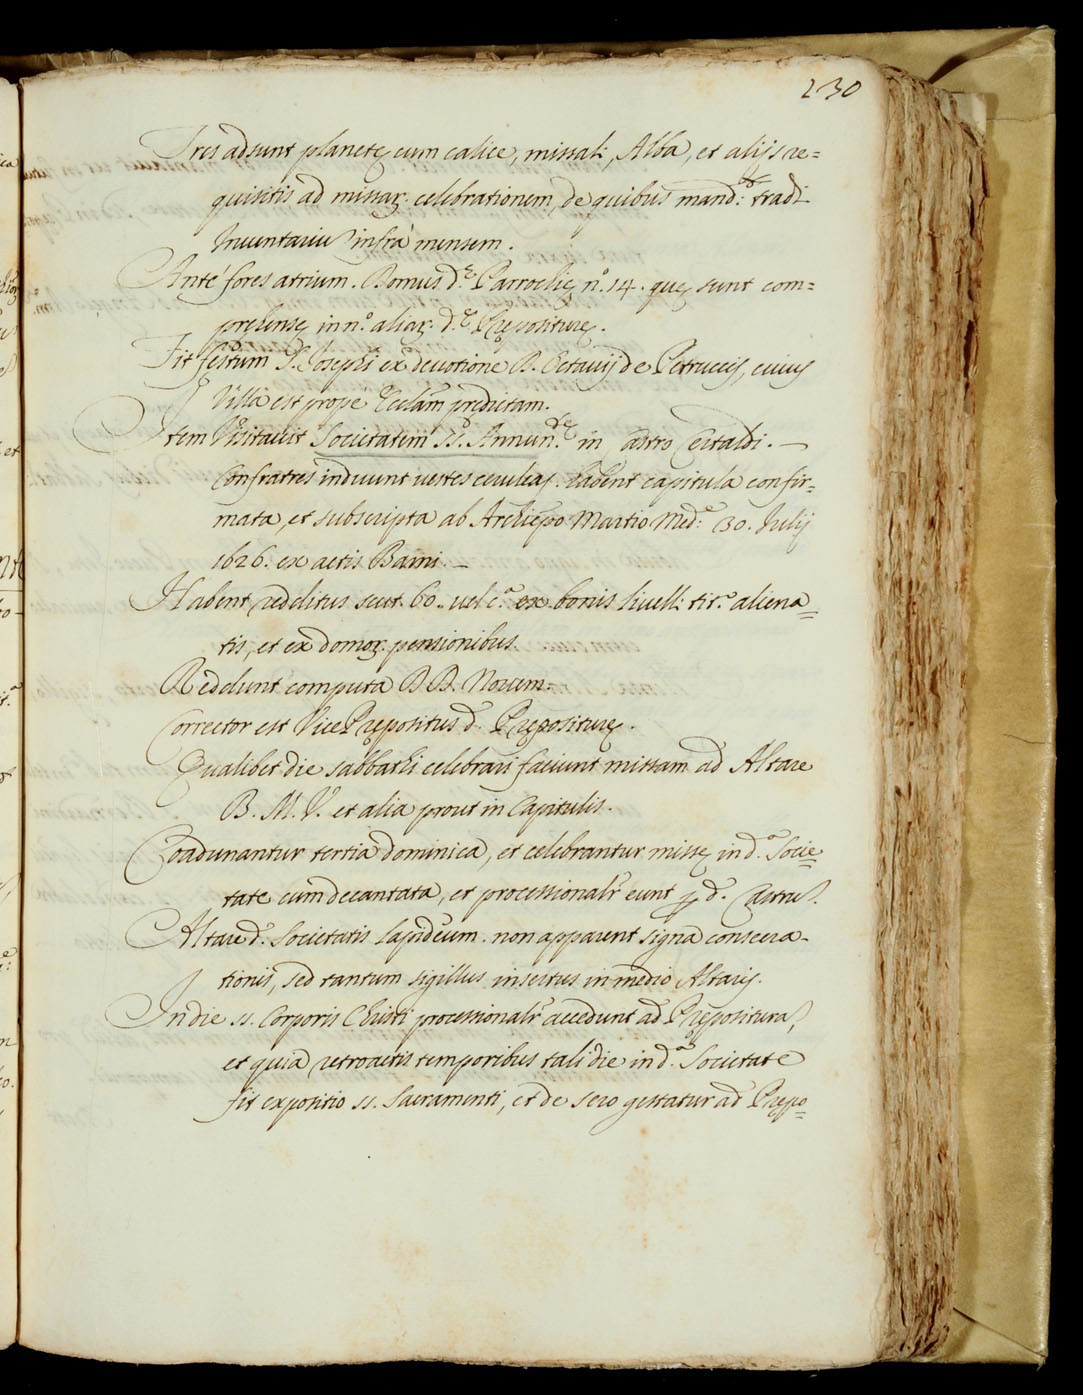 230
Tres adsunt planetę cum calice, missali, Alba, et alijs re=
quisitis ad missar. celebrationem, de quibus mand.t tradi
Inuentariu infrà mensem.
Ante fores atrium. Domus d.ę Parrochię n.o 14. quę sunt com=
prehensę in n.o aliar. d.ę Prępositurę.
Fit festum S. Josephi ex deuotione D. Octauij de Petruccijs, cuius
Villa est prope Ecclam predictam.
Item Visitauit Societatem SS. Annun.te in Castro Certaldi. —
Confratres induunt uestes ceruleas. habent capitula confir=
mata, et subscripta ab Archiepo Martio Med. 30. Julij
1626. ex actis Barni. —
Habent redditus scut. 60. uel c.a ex bonis liuell: tit.o aliena=
tis, et ex domor. pensionibus.
Reddunt computa DD. Nouem.
Corrector est Vice Prępositus d. Prępositurę.
Qualibet die sabbathi celebrari faciunt missam ad Altare
B. M. V. et alia prout in Capitulis.
Coadunantur tertia dominica, et celebrantur missę in d.a Socie=
tate cum decantata, et processionalr eunt p d. Castru.
Altare d. Societatis lapideum. non apparent signa consecra-
tionis, sed tantum sigillus insertus in medio Altaris.
In die SS. Corporis Christi processionalr accedunt ad Prępositura,
et quia retroactis temporibus tali die in d.a Societate
fit expositio SS. Sacramenti, et de sero gestatur ad Prępo=